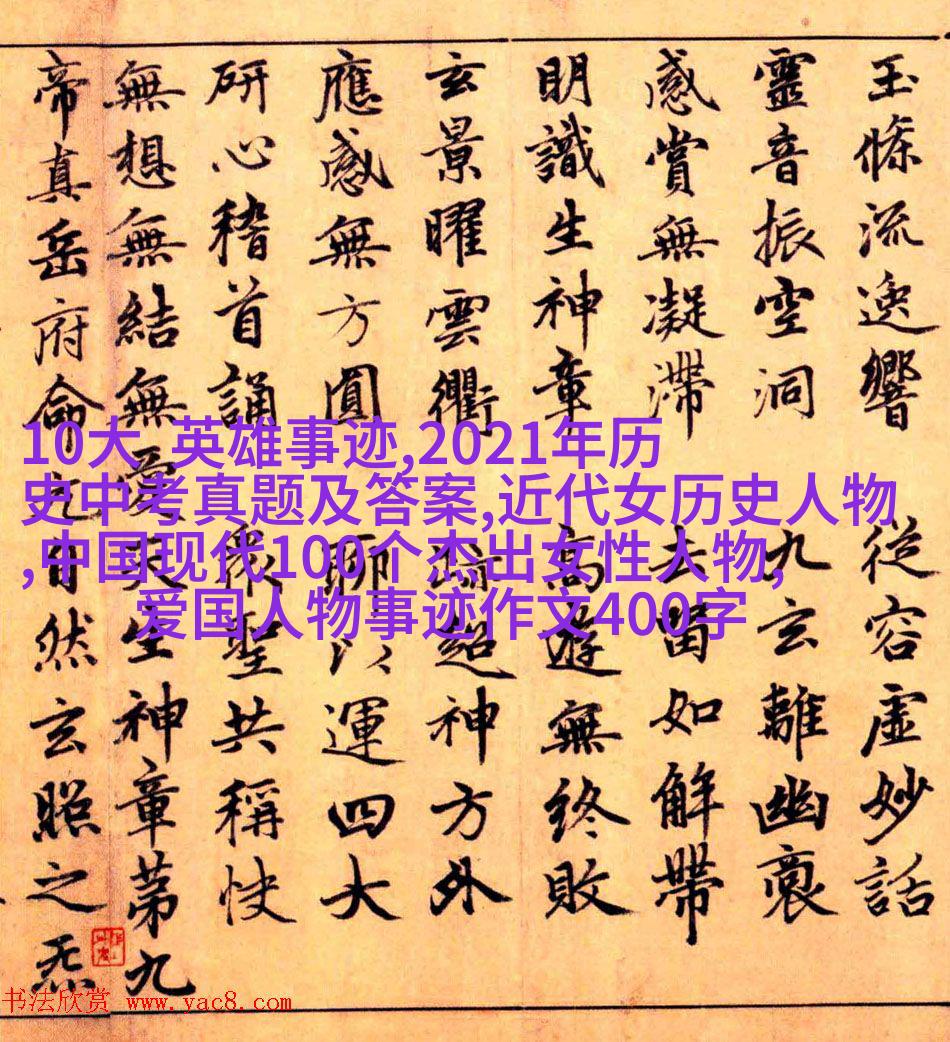 玉條流逸響 從容虛妙話
靈音振空洞 九玄離幽
感賞無凝滯 去留如解帶
明識生神章 高遊無終敗
玄景曜雲衢 超神方外
應感無方圓 聊以運四大
研心稽首誦 衆聖共稱快
無想無結無愛天生神章第九
帝真岳府命元自然玄照之炁
10大 英雄事迹,2021年历
史中考真题及答案,近代女历史人物
,中国现代100个杰出女性人物,
爱国人物事迹作文400字
书法欣赏 www.yac8.com